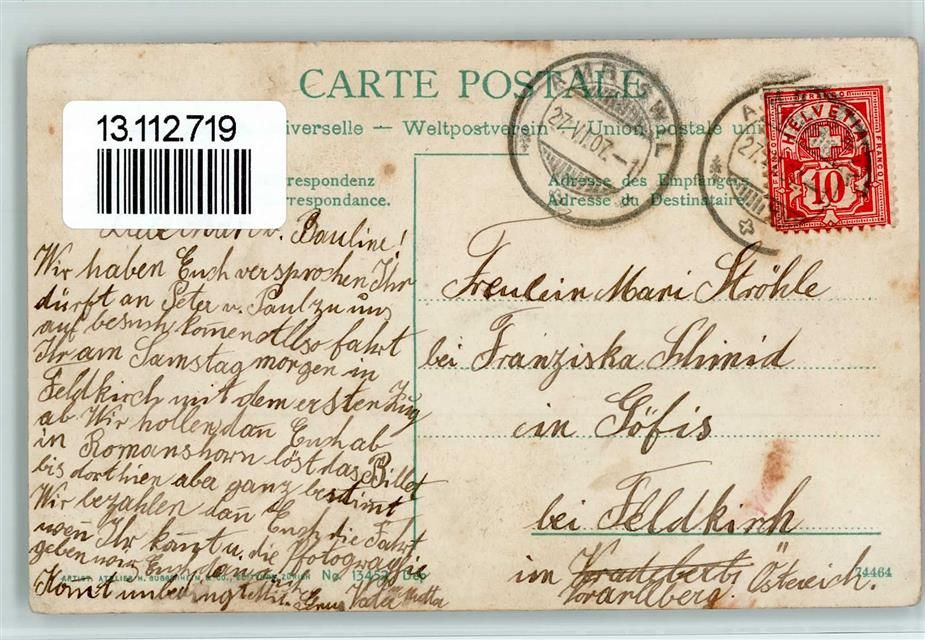 CARTE POSTALE
13.112.719
iverselle — Weltpostverein — Union postale uni
rrespondenz
rrespondance.
Adresse des Empfängers.
Adresse du Destinataire.
AMRISWIL
27.VI.07.-1
A
27.
HELVETIA
FRANCO
10
v. Pauline!
Wir haben Euch versprochen Ihr
dürft an Peter u. Paul zu uns
auf besuch komen Allso fahrt
Ihr am Samstag morgen in
Feldkirch mit dem ersten Zug
ab Wir hollen dan̄ Euch ab
in Romanshorn löst das Billet
bis dorthien aber ganz bestim̄t
Wir bezahlen dan̄ Euch die Fahrt
wen̄ Ihr kom̄t u. die Fotografie
geben wir Euch dan̄
Komt unbedingt Vater Mutter
Freulein Mari Ströhle
bei Franziska Schmid
in Göfis
bei Feldkirch
im Vorarlberg Östereich.
ARTIST. ATELIER H. GUGGENHEIM & CO., EDITEURS, ZÜRICH No. 13459 Dep
74464